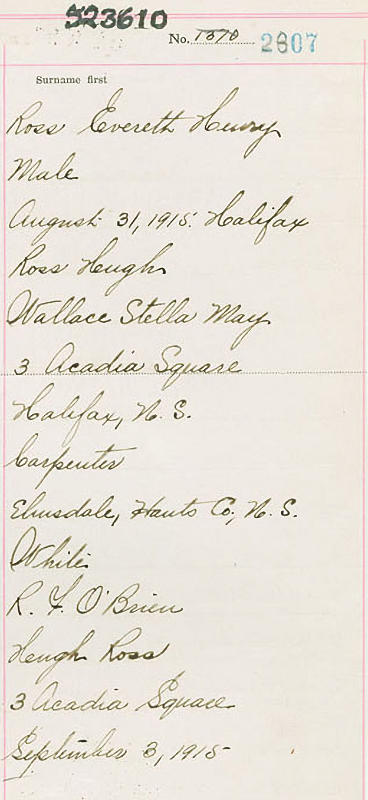 523610
No. 1370 2607
Surname first
Ross Evereth Henry
Male
August 31, 1915. Halifax
Ross Heugh
Wallace Stella May
3 Acadia Square
Halifax, N. S.
Carpenter
Elmsdale, Hants Co., N. S.
White
R. F. O'Brien
Heugh Ross
3 Acadia Square
September 3, 1915